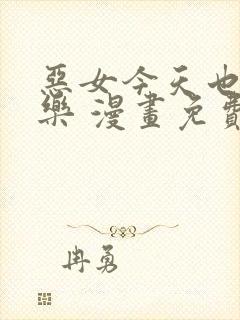 惡女今天也
樂 漫畫免費
冉勇